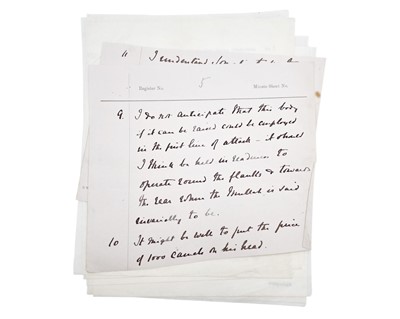 11 I understand
Register No. 5 Minute Sheet No.
9. I do not anticipate that this body
if it can be raised could be employed
in the first line of attack - it should
I think be held in readiness to
operate round the flanks & towards
the rear where the Mullah is said
invariably to be.
10 It might be well to put the price
of 1000 camels on his head.